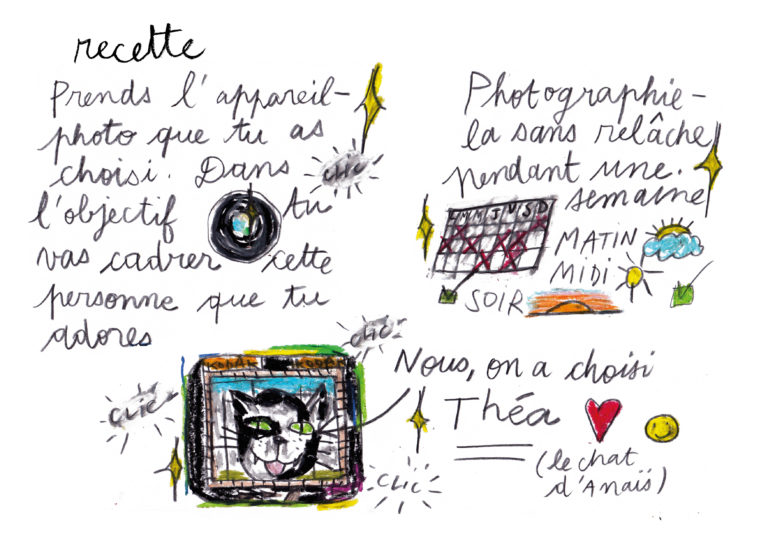 recette
Prends l'appareil-
photo que tu as
choisi. Dans
clic
l'objectif tu
vas cadrer cette
personne que tu
adores
Photographie-
la sans relâche
pendant une
semaine
L M M J V S D
MATIN
MIDI
SOIR
clic
clic
Nous, on a choisi
Théa
(le chat
d'Anaïs)
CLIC